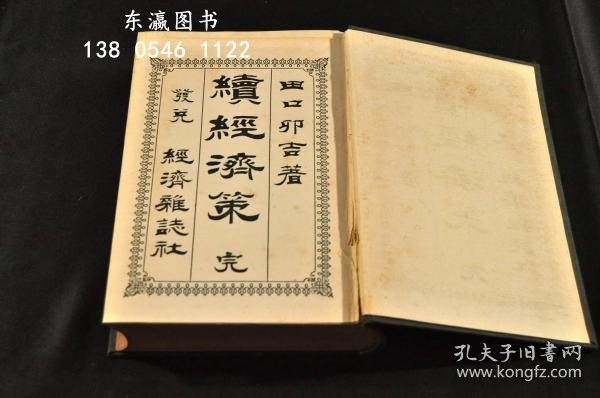 东瀛图书
138 0546 1122
田口卯吉著
續經濟策 完
發兌 經濟雜誌社
孔夫子旧书网
www.kongfz.com